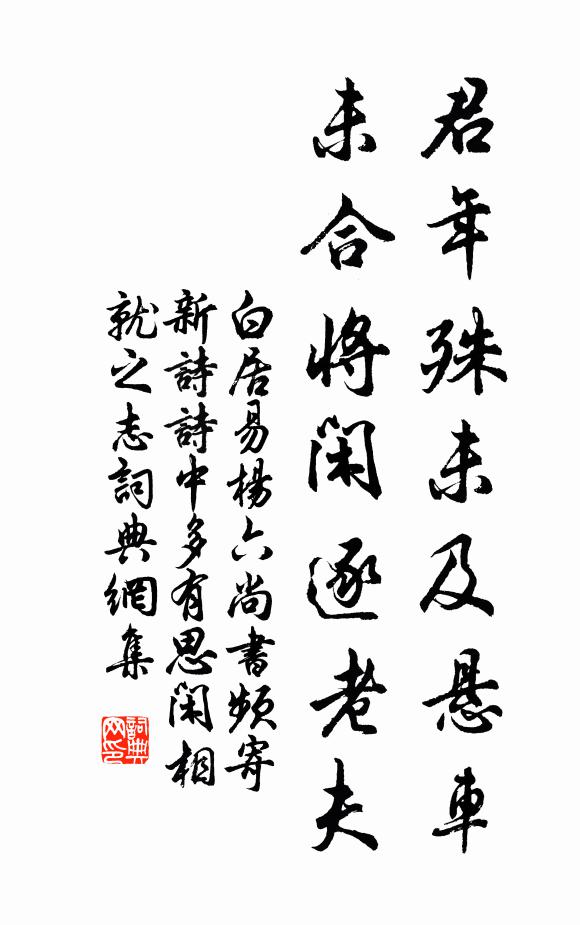 君年殊未及悬車
未合將閑逐老夫
白居易楊六尚書頻寄
新詩詩中多有思閑相
就之志詞典網集
詞典
网印